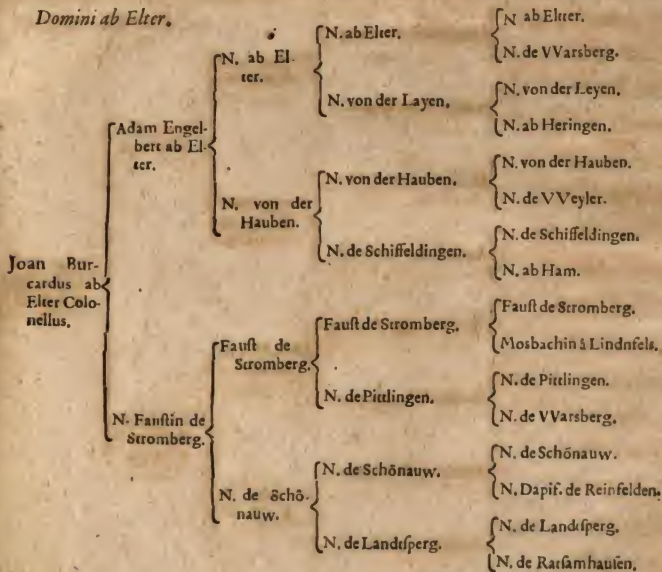 Domini ab Elter.
Joan Bur-
cardus ab
Elter Colo-
nellus.
Adam Engel-
bert ab El-
ter.
N. Faustin de
Stromberg.
N. ab El-
ter.
N. von der
Hauben.
Faust de
Stromberg.
N. de Schö-
nauw.
N. ab Elter.
N. von der Layen.
N. von der Hauben.
N. de Schiffeldingen.
Faust de Stromberg.
N. de Pittlingen.
N. de Schönauw.
N. de Landtsperg.
N ab Elter.
N. de VVarsberg.
N. von der Leyen.
N. ab Heringen.
N. von der Hauben.
N. de VVeyler.
N. de Schiffeldingen.
N. ab Ham.
Faust de Stromberg.
Mosbachin à Lindnfels.
N. de Pittlingen.
N. de VVarsberg.
N. de Schönauw.
N. Dapif. de Reinfelden.
N. de Landtsperg.
N. de Ratsamhausen.